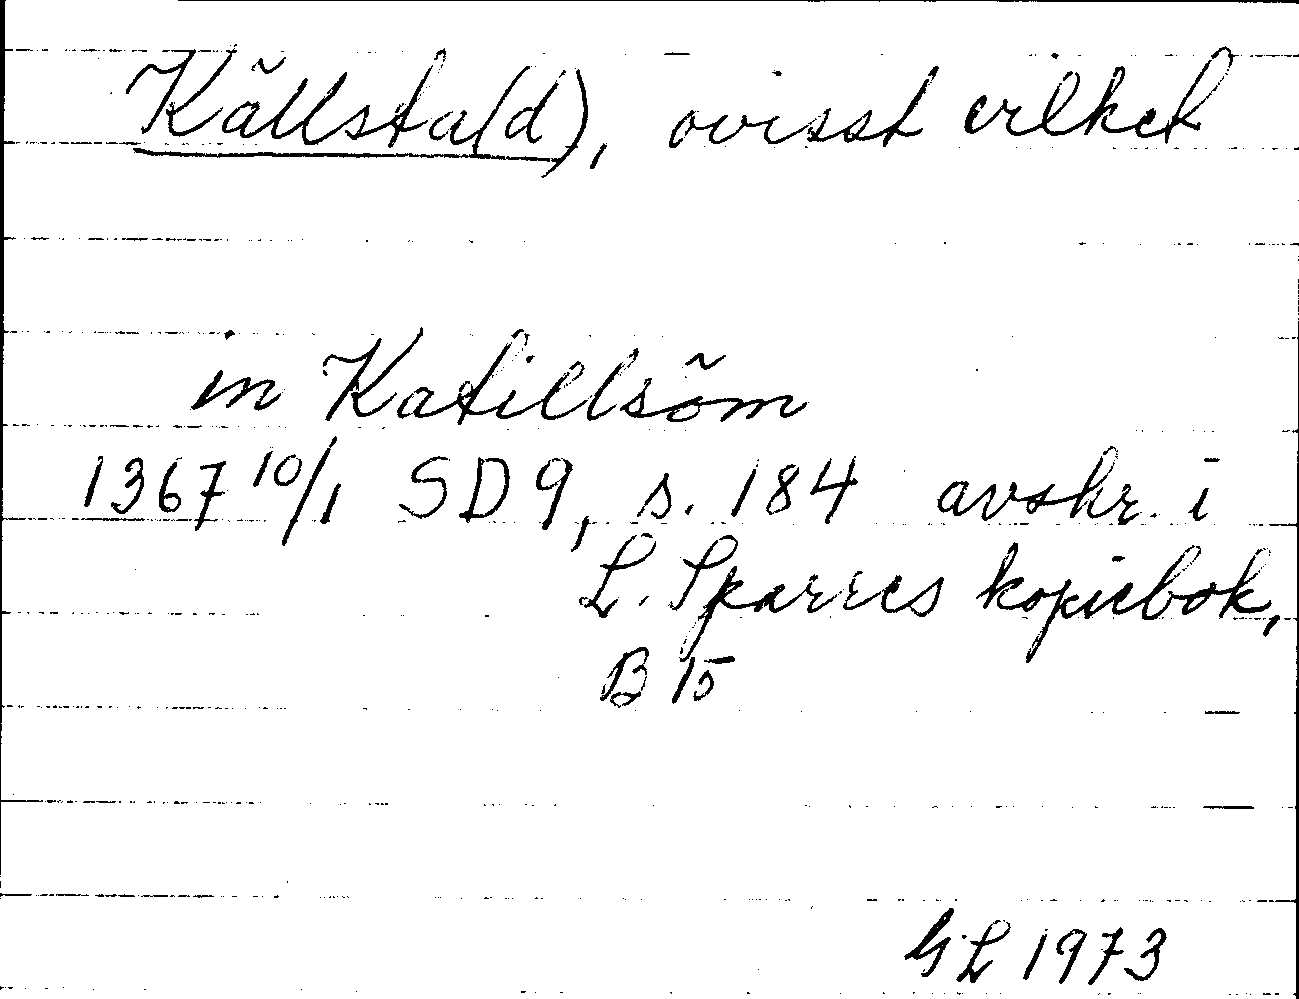 Källsta(d), ovisst vilket
in Katillsöm
1367 10/1 SD 9, s. 184 avskr. i
L. Sparres kopiebok,
B 15
GL 1973